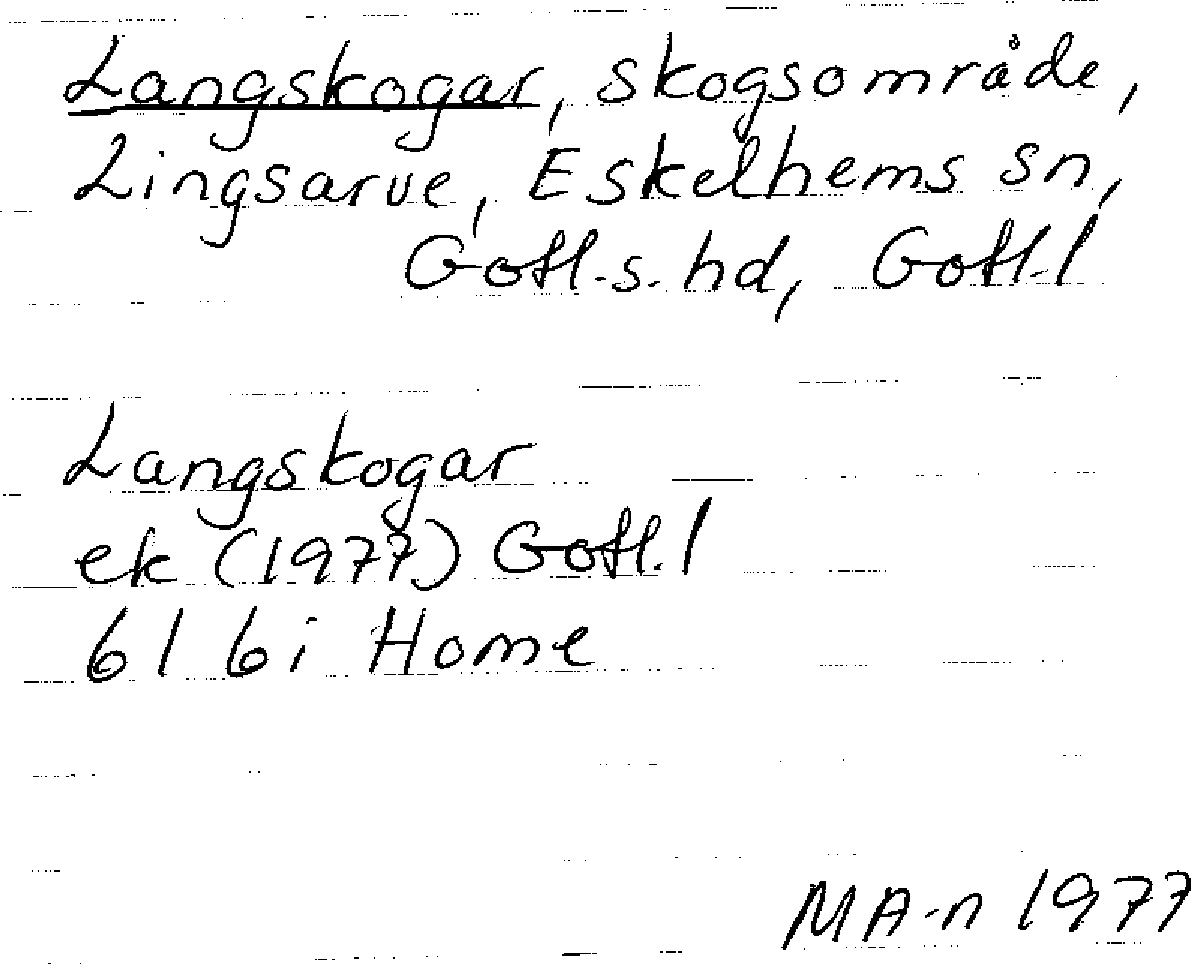 Langskogar, skogsområde,
Lingsarve, Eskelhems sn,
Gotl.s. hd, Gotl.l
Langskogar
ek (1977) Gotl.l
6I 6i Home
MA-n 1977